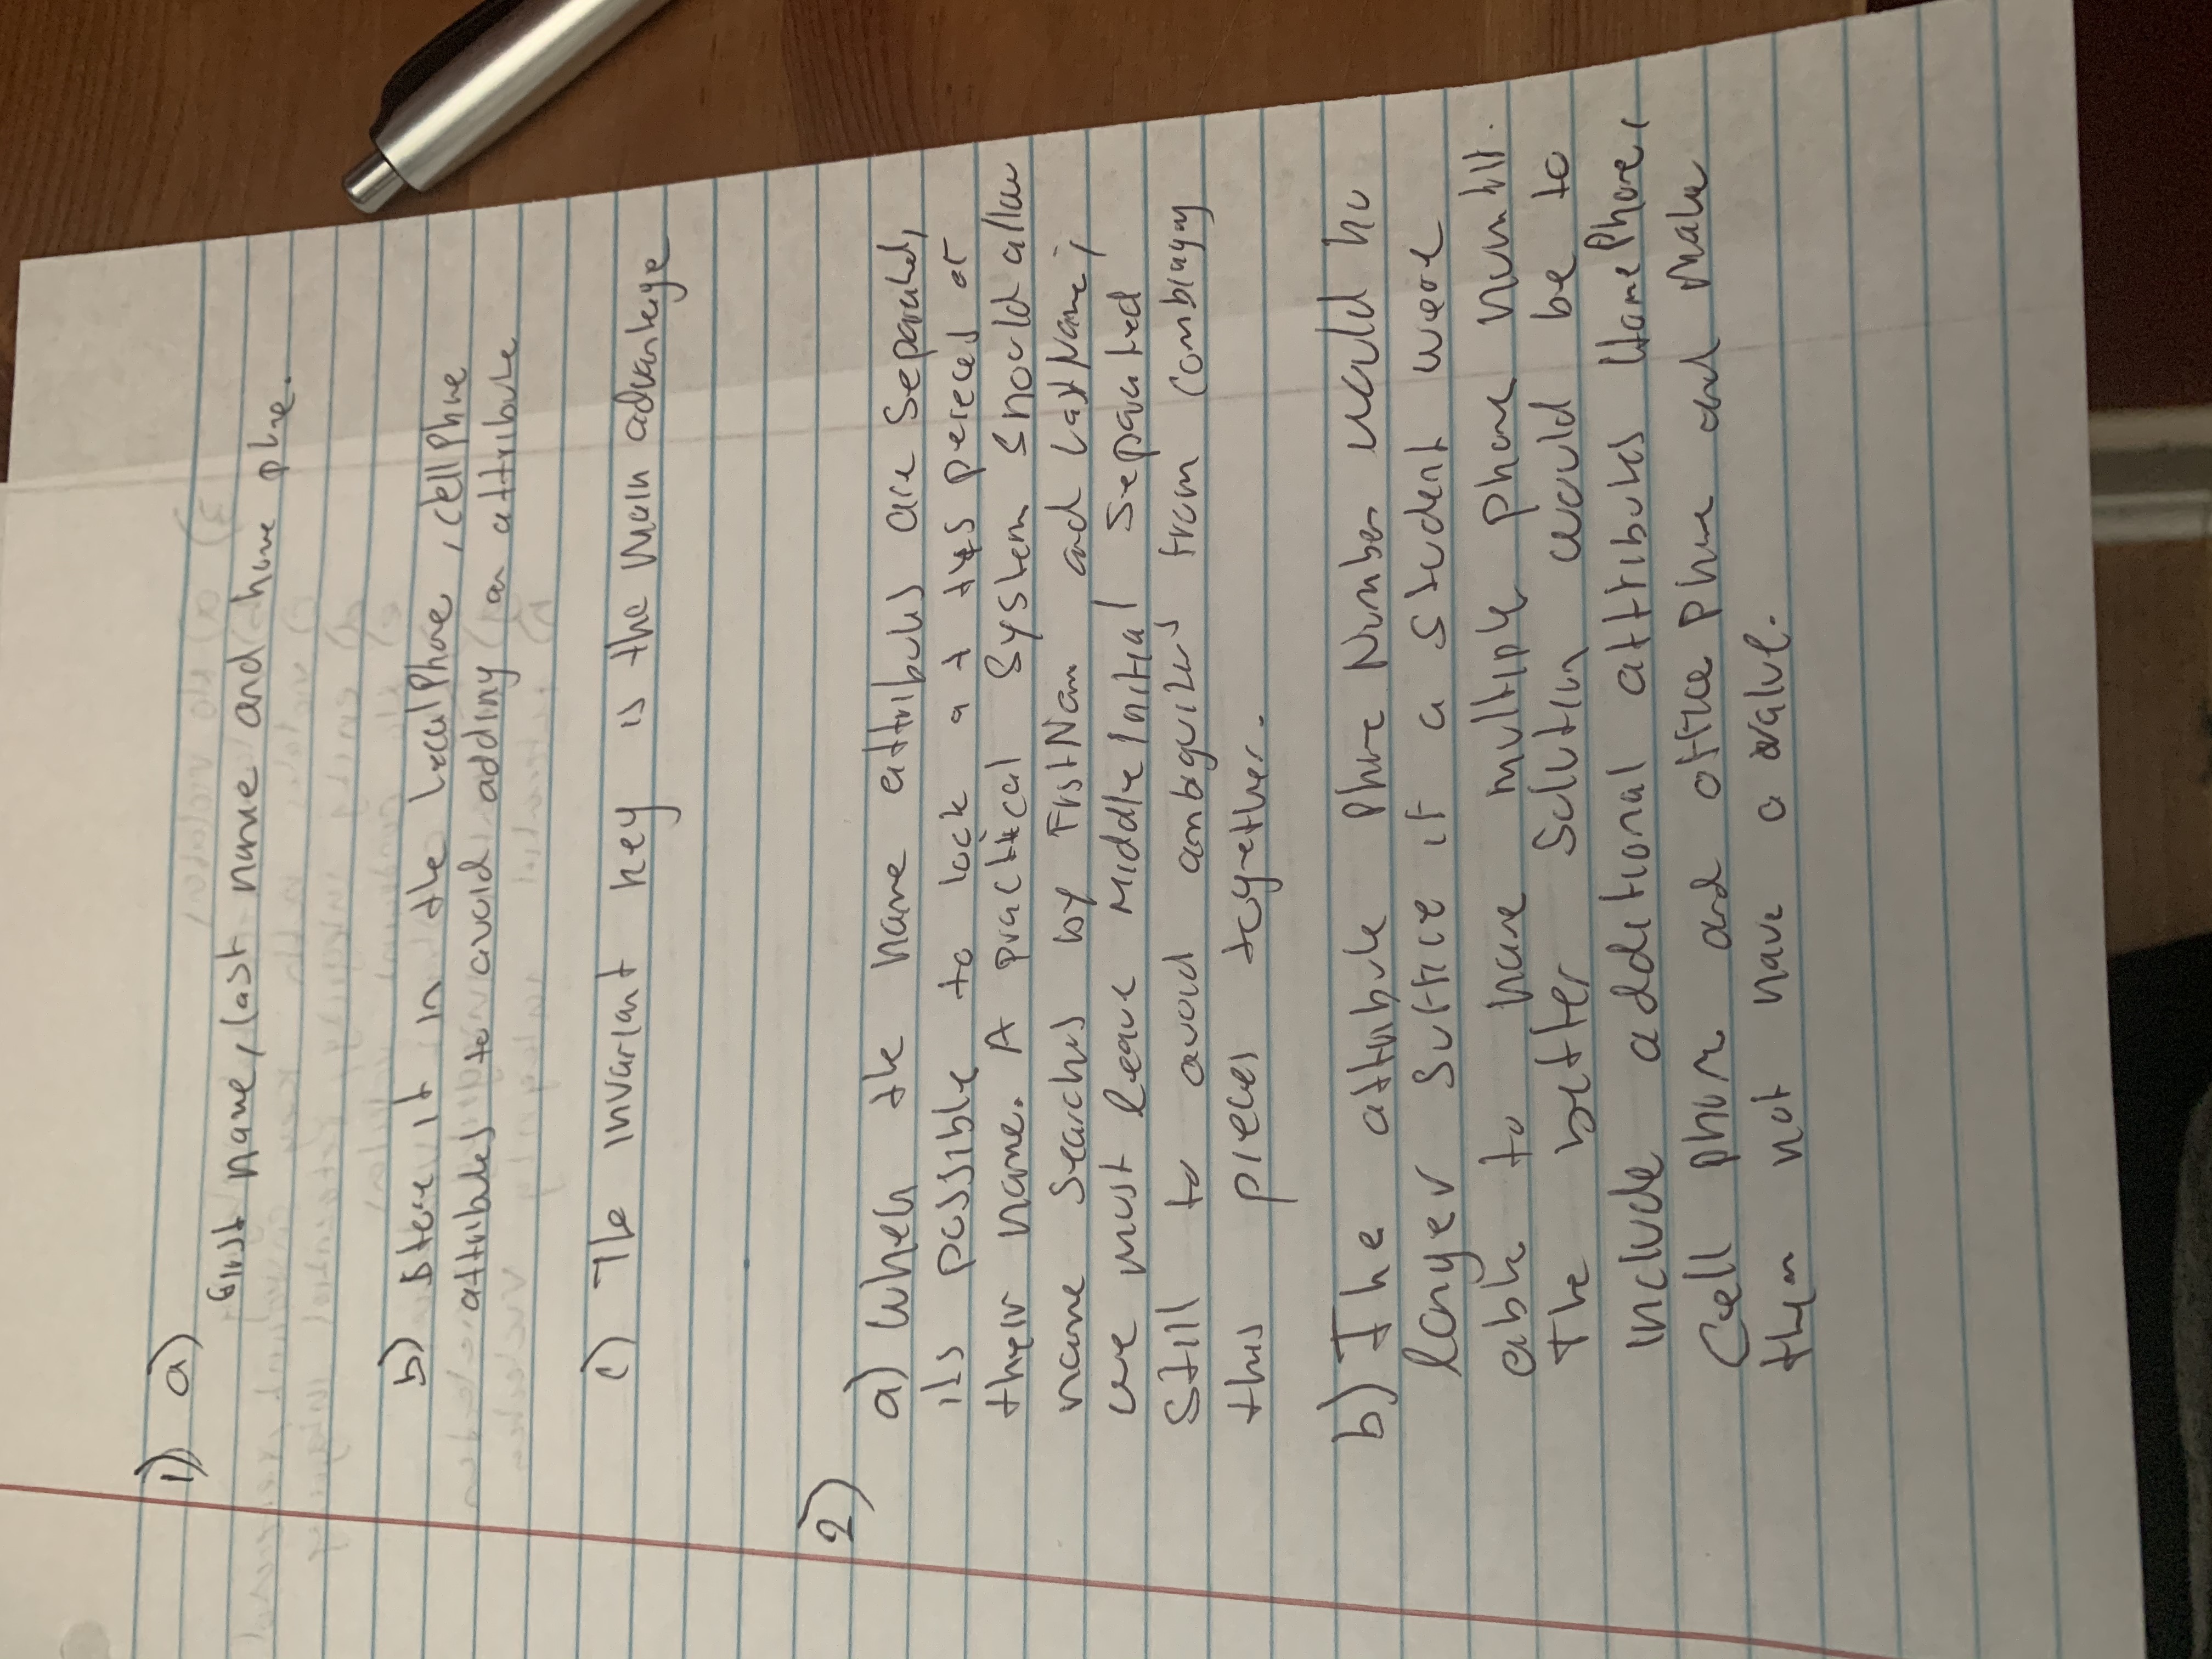 1) a)
First name, last name and home phne.
b) Store it in the LocalPhone, cellPhne
attributes to avoid adding an attribute
c) The invariant key is the main advantage
2)
a) When the name attributes are separated,
its possible to look at pereces of
their name. A practical System should allow
name Searches by FrstNam and LastName;
we must leave MiddleInitial Separated
Still to avoid ambiguities from
this pieces together.
b) The attribute Phone Number would no
longer suffice if a student were
able to have multiple phone
The better Solution would be to
include additional attributes HomePhone,
Cell phone and office Phone and make
them not have a value.
3) a) No violation